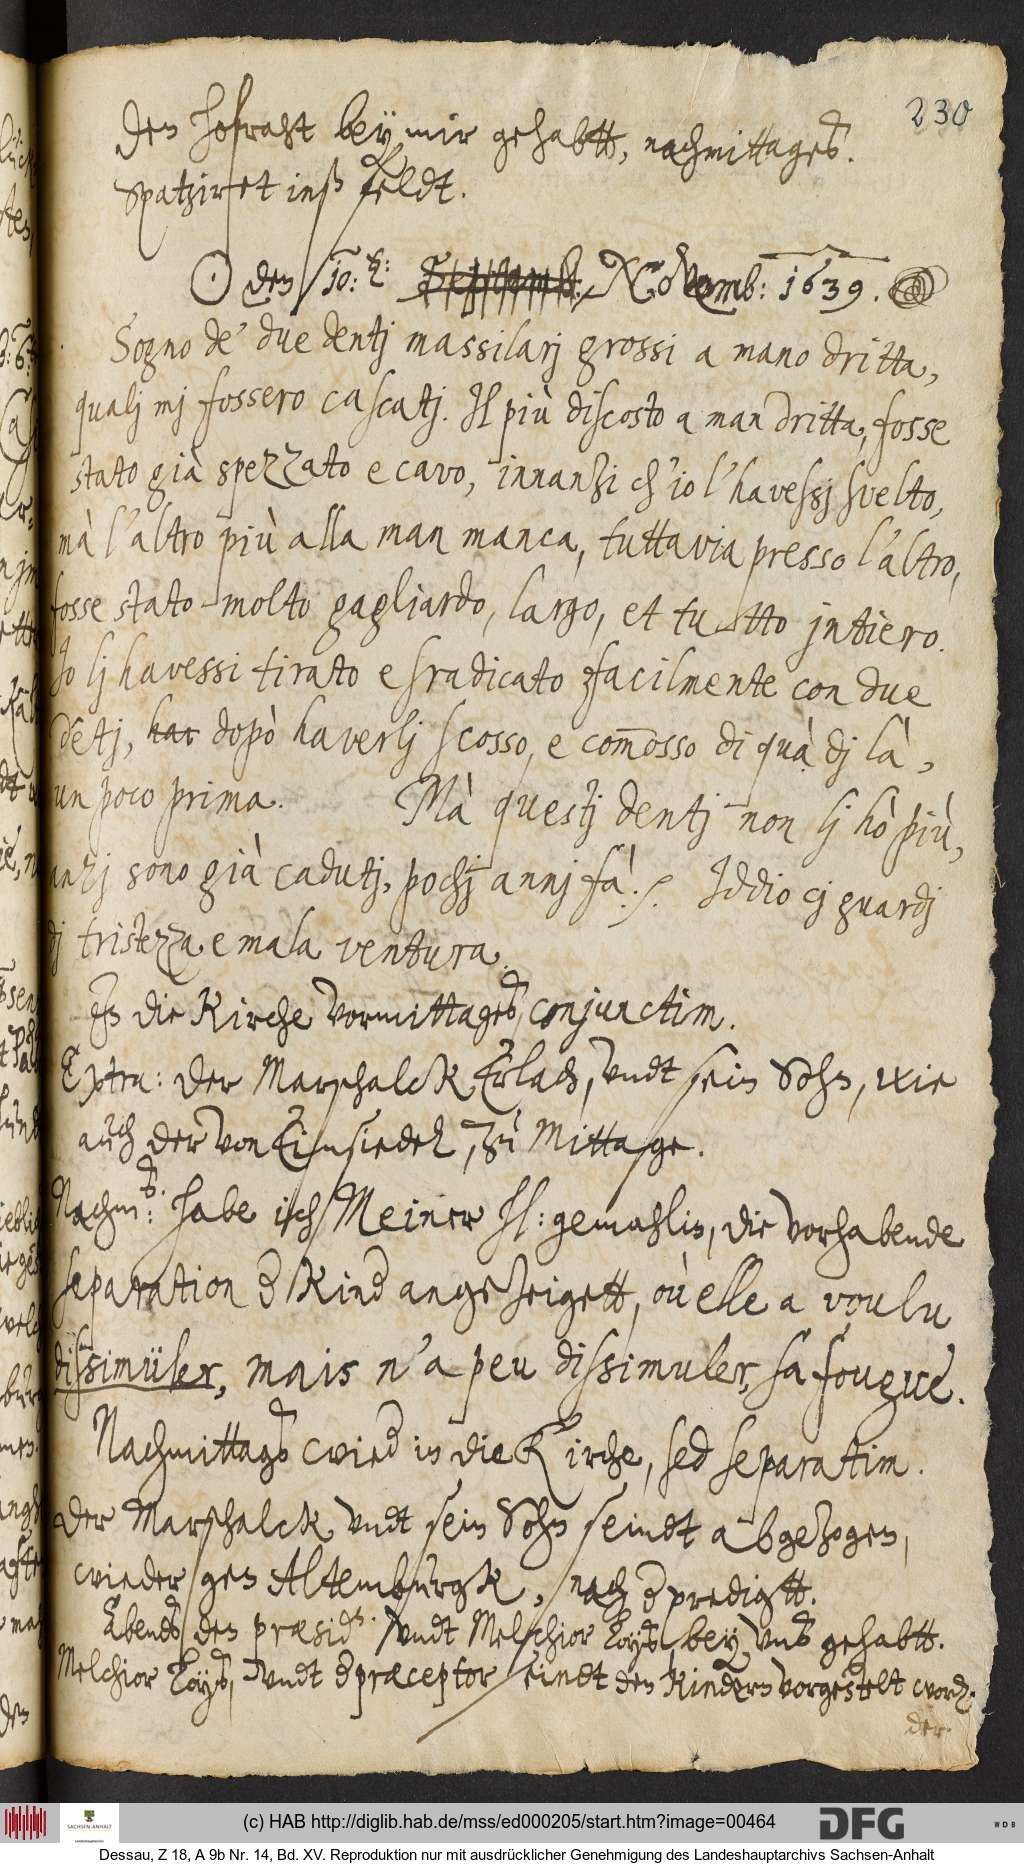 230
den hofraht bey mir gehabtt, nachmittages
spatziret inß feldt.
☉ den 10: Novemb: 1639.
Sogno de' due dentj massilarj grossi a mano dritta,
qualj mj fossero cascatj. Il più discosto a man dritta, fosse
stato già spezzato e cavo, innanzi ch'io l'havessj svelto,
mà l'altro più alla man manca, tuttavia presso l'altro,
fosse stato molto gagliardo, largo, et tutto jntiero.
Io lj havessi tirato e sradicato facilmente con due
detj, har dopò haverlj scosso, e com̄osso di quà dj là,
un poco prima. Mà questj dentj non lj hò più,
anzj sono già cadutj, pochj annj fà. Iddio cj guardj
dj tristezza e mala ventura.
In die Kirche vormittages conjunctim.
Extra: der Marschalck Erlach, vndt sein Sohn, wie
auch der von Einsiedel, zu Mittage.
Nachm: habe ich Meiner h: gemahlin, die vorhabende
separation d kind angezeigett, où elle a voulu
dissimüler, mais n'a peu dissimuler, sa fougue.
Nachmittags wied in die Kirche, sed separatim.
Der Marschalck vndt sein Sohn seindt abgezogen,
wieder gen Altemburgk, nach d predigtt.
Abends den præsid. vndt Melchior Loyß bey vnß gehabtt.
Melchior Loyß, vndt d præceptor seindt den kindern vorgestelt word.
der
(c) HAB http://diglib.hab.de/mss/ed000205/start.htm?image=00464
SACHSEN-ANHALT
DFG
WDB
Dessau, Z 18, A 9b Nr. 14, Bd. XV. Reproduktion nur mit ausdrücklicher Genehmigung des Landeshauptarchivs Sachsen-Anhalt